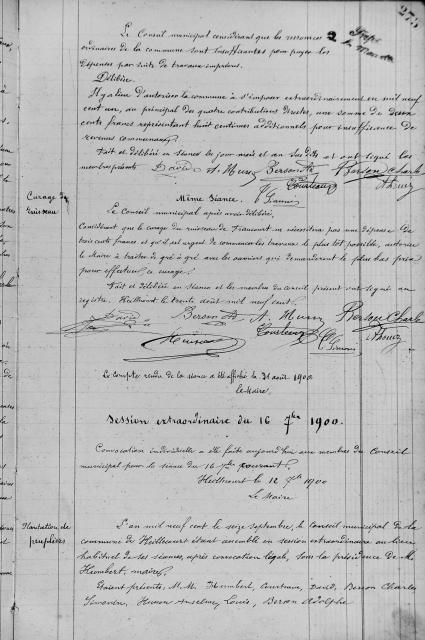 273
Le Conseil municipal considérant que les ressources
ordinaires de la commune sont insuffisantes pour payer les
dépenses par suite de travaux imprévus.
Délibère
Il y a lieu d'autoriser la commune à s'imposer extraordinairement en mil neuf
cent un, au principal des quatre contributions directes, une somme de deux
cents francs représentant huit centimes additionnels pour insuffisance de
revenus communaux.
Fait et délibéré en séance les jour, mois et an susdits et ont signé les
membres présents David A. Husson Berson Ad Berson Charles
Courteaux
Même Séance.
Curage du
ruisseau
Le Conseil municipal après avoir délibéré,
Considérant que le curage du ruisseau de n'excèdera pas une dépense de
trois cents francs et qu'il est urgent de commencer les travaux le plus tôt possible, autorise
le Maire à traiter de gré à gré avec les ouvriers qui demanderont le plus bas prix
pour effectuer ce curage.
Fait et délibéré en séance et les membres du conseil présents ont signé au
registre. Heillecourt le trente août mil neuf cent.
David Berson Ad A. Husson Berson Charles
Courteaux
Le compte rendu de la séance a été affiché le 31 août 1900
Le Maire,
Session extraordinaire du 16 7bre 1900.
Convocation individuelle a été faite aujourd'hui aux membres du Conseil
municipal pour la séance du 16 7bre courant.
Heillecourt le 12 7bre 1900
Le Maire
Plantation de
peupliers
L'an mil neuf cent le seize septembre, le Conseil municipal de la
commune de Heillecourt étant assemblé en session extraordinaire au lieu
habituel de ses séances, après convocation légale, sous la présidence de M.
Humbert, maire.
Étaient présents, M.M. Humbert, Courteaux, David, Berson Charles
Husson Anselme, Louis, Berson Adolphe